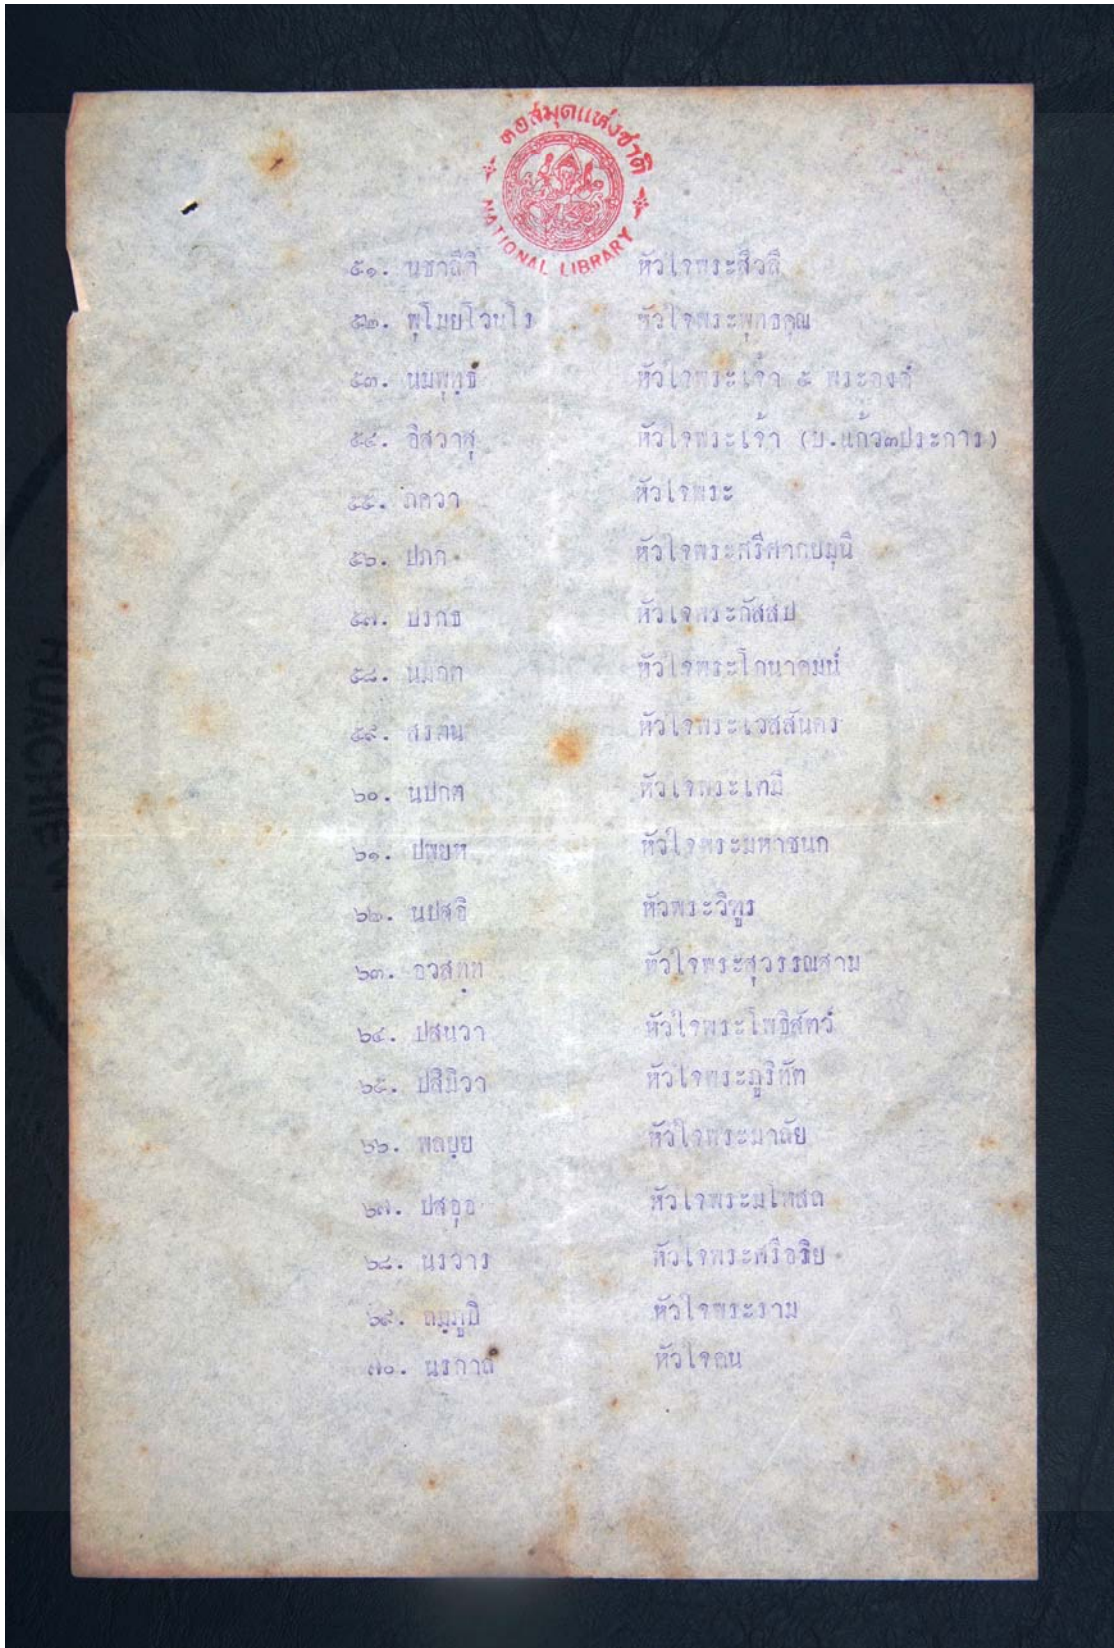 หอสมุดแห่งชาติ
NATIONAL LIBRARY
๕๑. นชาลีติ หัวใจพระสิวลี
๕๒. พุโมยโวนโร หัวใจพระพุทธคุณ
๕๓. นมพุทธ หัวใจพระเจ้า ๕ พระองค์
๕๔. อิสวาสุ หัวใจพระเจ้า (บ.แก้ว๓ประการ)
๕๕. ภควา หัวใจพระ
๕๖. ปภก หัวใจพระศรีศากยมุนี
๕๗. ปรกธ หัวใจพระกัสสป
๕๘. นมกต หัวใจพระโกนาคมน์
๕๙. สรตน หัวใจพระเวสสันดร
๖๐. นปกต หัวใจพระเตมี
๖๑. ปพยห หัวใจพระมหาชนก
๖๒. นปสุอิ หัวพระวิทูร
๖๓. หัวใจพระสุวรรณสาม
๖๔. ปสนวา หัวใจพระโพธิสัตว์
๖๕. ปสิมิวา หัวใจพระภูริทัต
๖๖. พลยุย หัวใจพระมาลัย
๖๗. หัวใจพระมโหสถ
๖๘. นรวาร หัวใจพระศรีอริย
๖๙. หัวใจพระราม
๗๐. นรกาล หัวใจคน
HUACHIEW